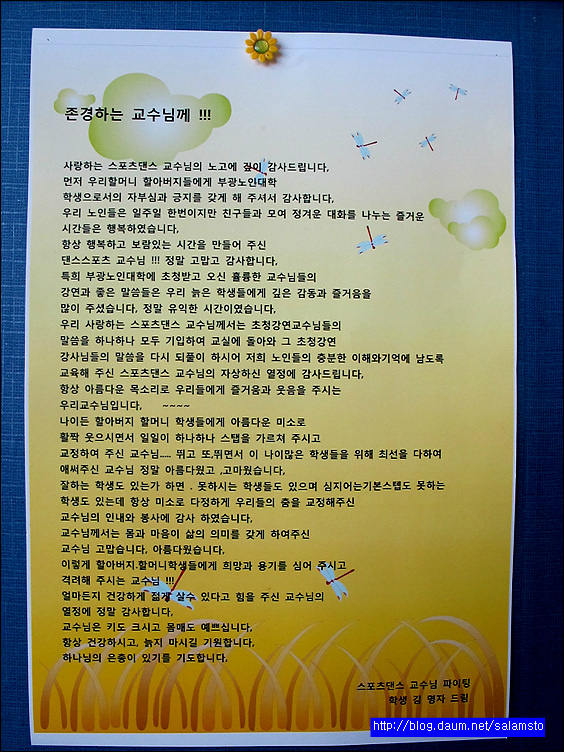 존경하는 교수님께 !!!
사랑하는 스포츠댄스 교수님의 노고에 깊이 감사드립니다,
먼저 우리할머니 할아버지들에게 부광노인대학
학생으로서의 자부심과 긍지를 갖게 해 주셔서 감사합니다,
우리 노인들은 일주일 한번이지만 친구들과 모여 정겨운 대화를 나누는 즐거운
시간들은 행복하였습니다,
항상 행복하고 보람있는 시간을 만들어 주신
댄스스포츠 교수님 !!! 정말 고맙고 감사합니다,
특희 부광노인대학에 초청받고 오신 휼륭한 교수님들의
강연과 좋은 말씀들은 우리 늙은 학생들에게 깊은 감동과 즐거움을
많이 주셨습니다, 정말 유익한 시간이였습니다,
우리 사랑하는 스포츠댄스 교수님께서는 초청강연교수님들의
말씀을 하나하나 모두 기입하여 교실에 돌아와 그 초청강연
강사님들의 말씀을 다시 되풀이 하시어 저희 노인들의 충분한 이해와기억에 남도록
교육해 주신 스포츠댄스 교수님의 자상하신 열정에 감사드립니다,
항상 아름다운 목소리로 우리들에게 즐거움과 웃음을 주시는
우리교수님입니다, ~~~~
나이든 할아버지 할머니 학생들에게 아름다운 미소로
활짝 웃으시면서 일일이 하나하나 스탭을 가르쳐 주시고
교정하여 주신 교수님..... 뛰고 또,뛰면서 이 나이많은 학생들을 위해 최선을 다하여
애써주신 교수님 정말 아름다웠고 ,고마웠습니다,
잘하는 학생도 있는가 하면 . 못하시는 학생들도 있으며 심지어는기본스텝도 못하는
학생도 있는데 항상 미소로 다정하게 우리들의 춤을 교정해주신
교수님의 인내와 봉사에 감사 하였습니다,
교수님께서는 몸과 마음이 삶의 의미를 갖게 하여주신
교수님 고맙습니다, 아름다웠습니다,
이렇게 할아버지.할머니학생들에게 희망과 용기를 심어 주시고
격려해 주시는 교수님 !!!
얼마든지 건강하게 젊게 살수 있다고 힘을 주신 교수님의
열정에 정말 감사합니다,
교수님은 키도 크시고 몸매도 예쁘십니다,
항상 건강하시고, 늙지 마시길 기원합니다,
하나님의 은총이 있기를 기도합니다,
스포츠댄스 교수님 파이팅
학생 김 영자 드림
http://blog.daum.net/salamsto